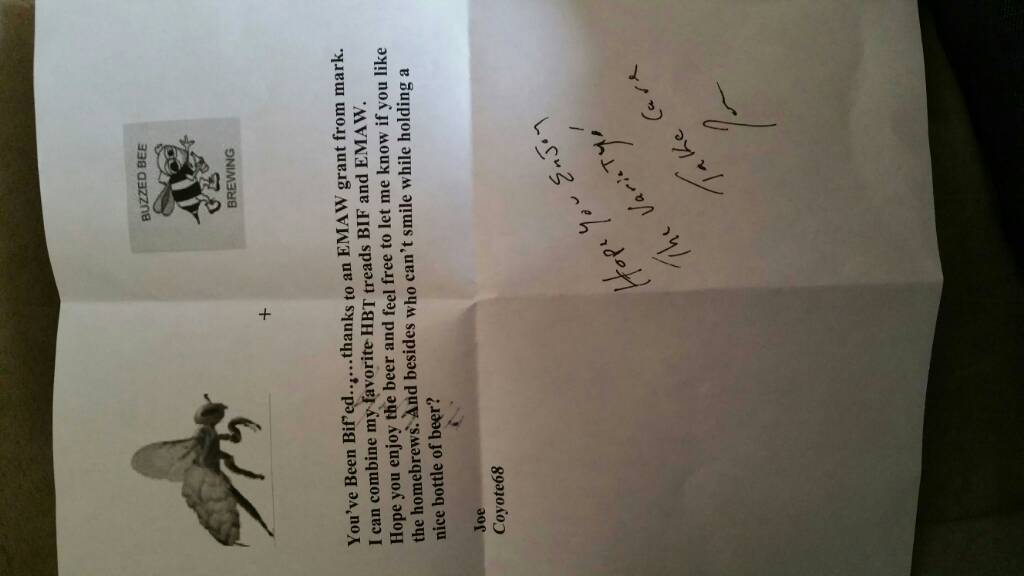 BUZZED BEE
BREWING
+
You've Been Bif'ed..,...thanks to an EMAW grant from mark.
I can combine my favorite HBT treads BIF and EMAW.
Hope you enjoy the beer and feel free to let me know if you like
the homebrews. And besides who can't smile while holding a
nice bottle of beer?
Joe
Coyote68
Hope you Enjoy
The Variety!
Take Care
Joe